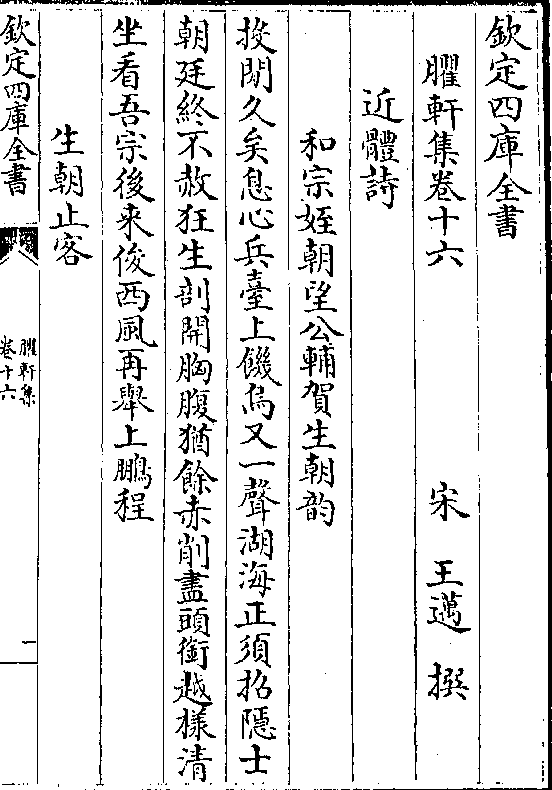 欽定四庫全書
臞軒集卷十六
宋 王邁 撰
近體詩
和宗姪朝望公輔賀生朝韵
投閒久矣息心兵臺上饑烏又一聲湖海正須招隱士
朝廷終不赦狂生剖開胸腹猶餘赤削盡頭銜越様清
坐看吾宗後来俊西風再舉上鵬程
生朝止客
欽定四庫全書
臞軒集
卷十六
一